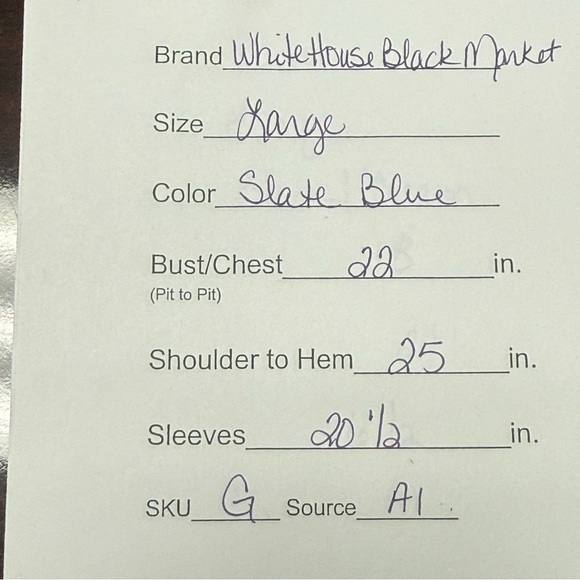 Brand White House Black Market
Size Large
Color Slate Blue
Bust/Chest 22 in.
(Pit to Pit)
Shoulder to Hem 25 in.
Sleeves 20 1/2 in.
SKU G Source A1